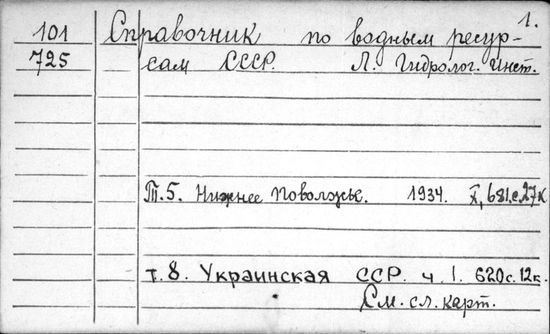 1.
101 Справочник по водным ресур-
725 сам СССР. Л. Гидролог. Инст.
Т.5. Нижнее Поволжье. 1934. X, 681.с.27к
т.8. Украинская ССР. ч.1. 620с.12к.
См. сл. карт.